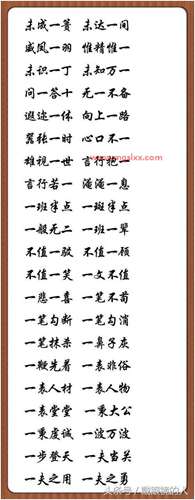 未成一篑 未达一间
威凤一羽 惟精惟一
未识一丁 未知万一
问一答十 无一不备
遐迩一体 向上一路
嚣张一时 心口不一
雄视一世 言行 一
言行若一 淹淹一息
一班半点 一斑半点
一般无二 一班一辈
不值一驳 不值一顾
不值一笑 一文不值
一悲一喜 一笔不苟
一笔勾断 一笔勾消
一笔抹杀 一鼻子灰
一鞭先着 一表非俗
一表人材 一表人物
一表堂堂 一秉大公
一秉虔诚 一波万波
一步登天 一夫当关
一夫之用 一夫之勇
头条号